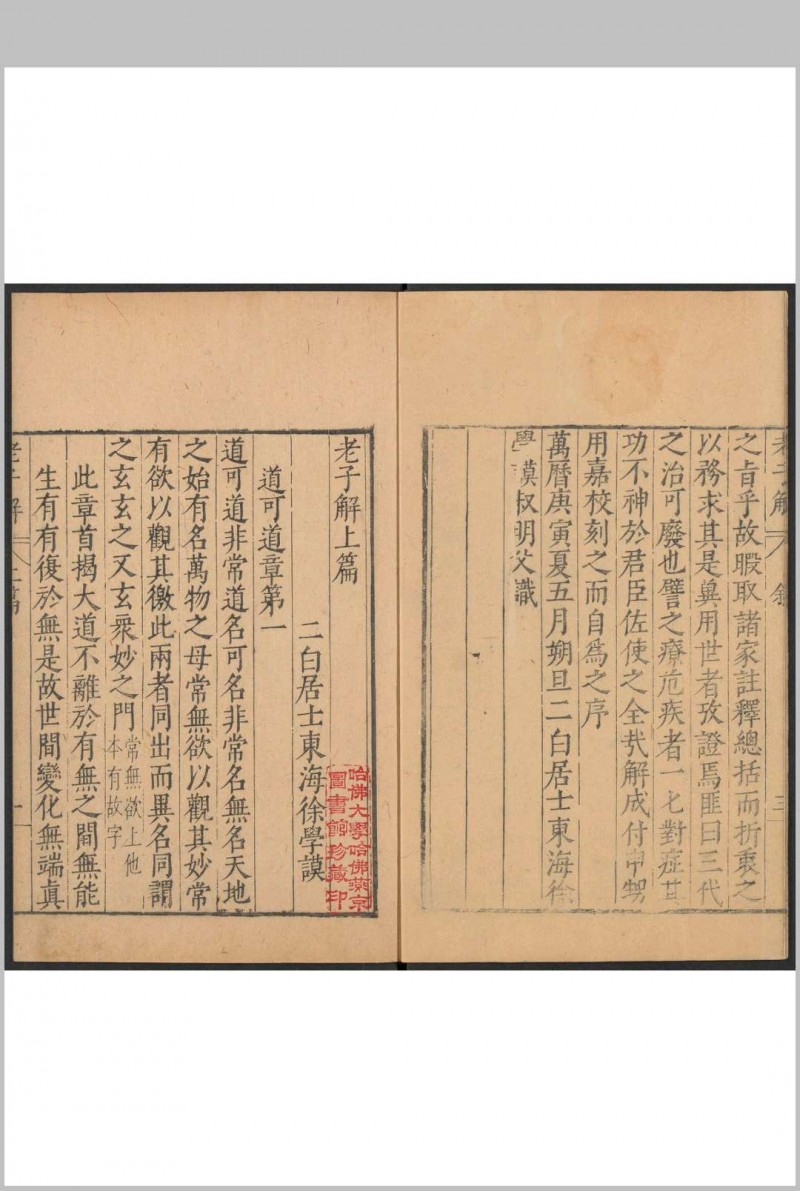 老子解 敘 三
之旨乎故暇取諸家註釋總括而折衷之
以務求其是兾用世者攷證焉匪曰三代
之治可廢也譬之療危疾者一匕對症其
功不神於君臣佐使之全㢤解成付甥
用嘉校刻之而自爲之序
萬曆庚寅夏五月朔旦二白居士東海徐
學謨叔明父識
老子解上篇
二白居士東海徐學謨
哈佛大學哈佛燕京
圖書館珍藏印
道可道章第一
道可道非常道名可名非常名無名天地
之始有名萬物之母常無欲以觀其妙常
有欲以觀其徼此兩者同出而異名同謂
之玄玄之又玄衆妙之門常無欲上他
本有故字
此章首揭大道不離於有無之間無能
生有有復於無是故世間變化無端眞
老子解 上篇 一